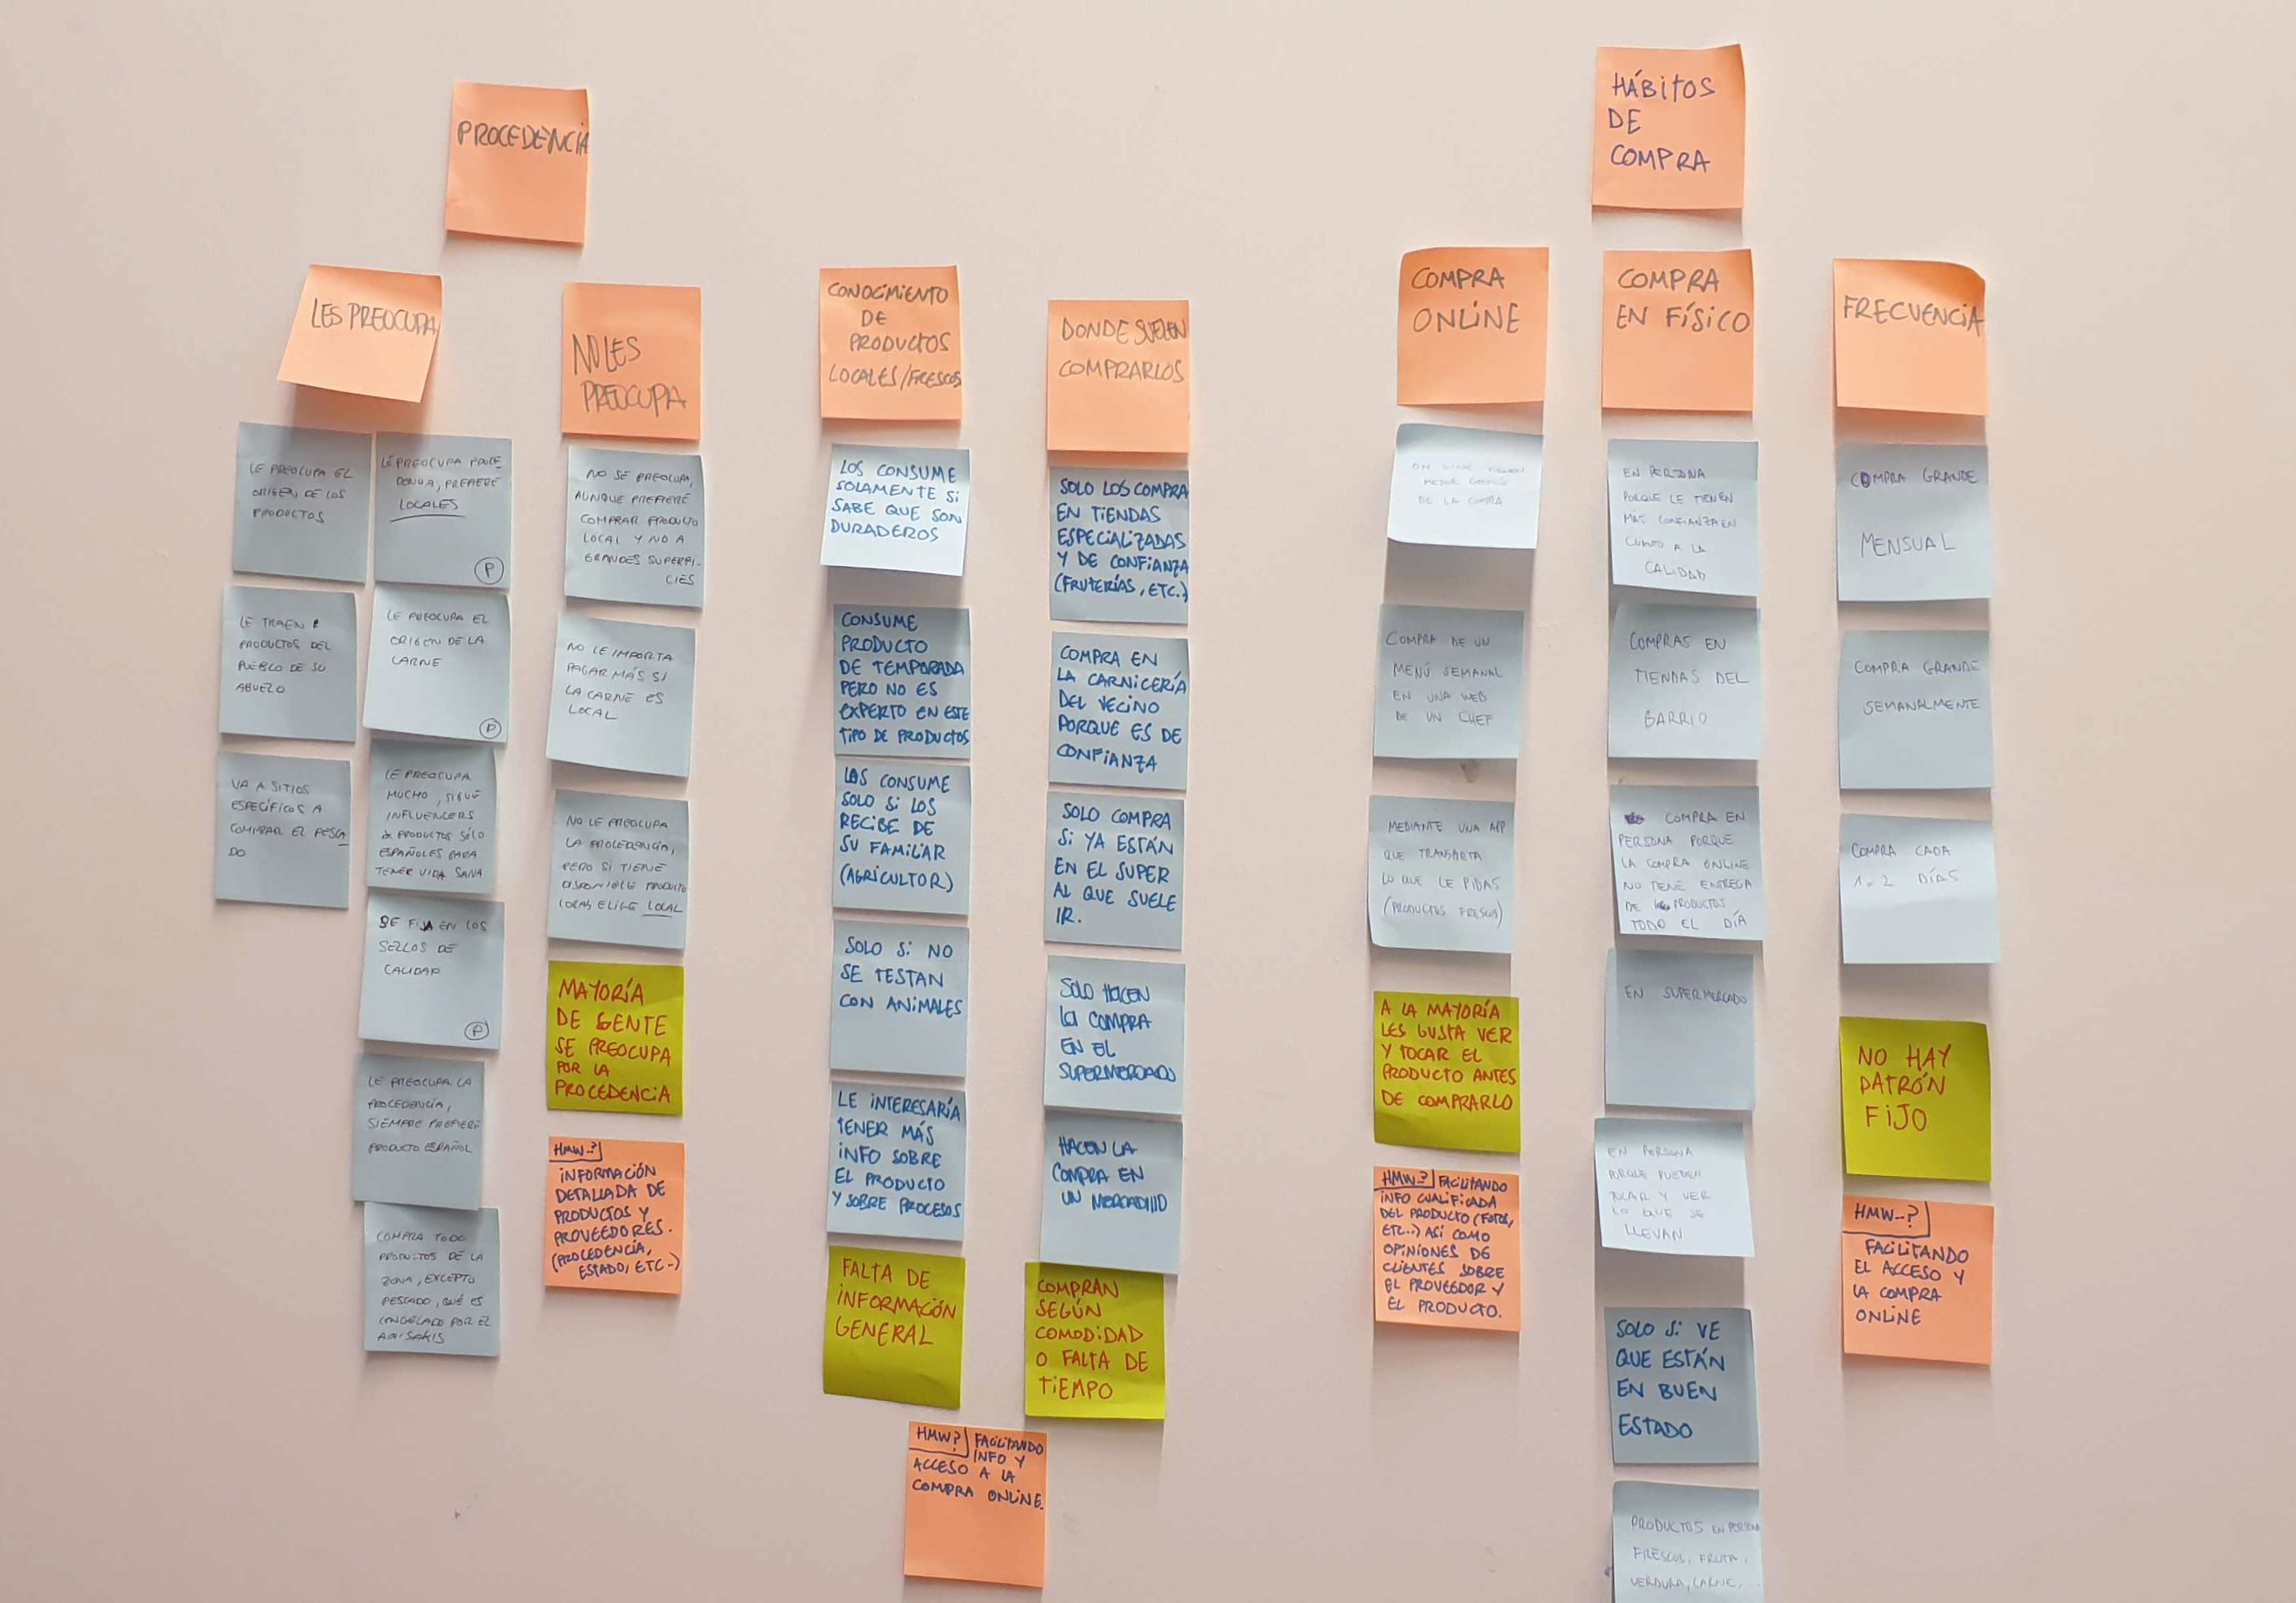 PROCEDENCIA
LES PREOCUPA
LE PREOCUPA EL
ORIGEN DE LOS
PRODUCTOS
LE TRAEN
PRODUCTOS DEL
PUEBLO DE SU
ABUELO
VA A SITIOS
ESPECÍFICOS A
COMPRAR EL PESCA
DO
LE PREOCUPA PROCE
DENCIA, PREFIERE
LOCALES
P
LE PREOCUPA EL
ORIGEN DE LA
CARNE
P
LE PREOCUPA
MUCHO, SIGUE
INFLUENCERS
de PRODUCTOS SÓLO
ESPAÑOLES PARA
TENER VIDA SANA
SE FIJA EN LOS
SELLOS DE
CALIDAD
P
LE PREOCUPA LA
PROCEDENCIA,
SIEMPRE PREFIERE
PRODUCTO ESPAÑOL
COMPRA TODO
PRODUCTOS DE LA
ZONA, EXCEPTO
PESCADO, QUÉ ES
CONGELADO POR EL
ANISAKIS
NO LES
PREOCUPA
NO SE PREOCUPA,
AUNQUE PREFIERE
COMPRAR PRODUCTO
LOCAL Y NO A
GRANDES SUPERFI-
CIES
NO LE IMPORTA
PAGAR MÁS SI
LA CARNE ES
LOCAL
NO LE PREOCUPA
LA PROCEDENCIA,
PERO SI TIENE
DISPONIBLE PRODUCTO
LOCAL ELIGE LOCAL
MAYORÍA
DE GENTE
SE PREOCUPA
POR LA
PROCEDENCIA
HMW..?
INFORMACIÓN
DETALLADA DE
PRODUCTOS Y
PROVEEDORES.
(PROCEDENCIA,
ESTADO, ETC..)
CONOCIMIENTO
DE
PRODUCTOS
LOCALES/FRESCOS
LOS CONSUME
SOLAMENTE SI
SABE QUE SON
DURADEROS
CONSUME
PRODUCTO
DE TEMPORADA
PERO NO ES
EXPERTO EN ESTE
TIPO DE PRODUCTOS
LOS CONSUME
SOLO SI LOS
RECIBE DE
SU FAMILIAR
(AGRICULTOR)
SOLO SI NO
SE TESTAN
CON ANIMALES
LE INTERESARÍA
TENER MÁS
INFO SOBRE
EL PRODUCTO
Y SOBRE PROCESOS
FALTA DE
INFORMACIÓN
GENERAL
DONDE SUELEN
COMPRARLOS
SOLO LOS COMPRA
EN TIENDAS
ESPECIALIZADAS
Y DE CONFIANZA
(FRUTERÍAS, ETC..)
COMPRA EN
LA CARNICERÍA
DEL VECINO
PORQUE ES DE
CONFIANZA
SOLO COMPRA
SI YA ESTÁN
EN EL SUPER
AL QUE SUELE
IR.
SOLO HACEN
la COMPRA
EN EL
SUPERMERCADO
HACEN LA
COMPRA EN
UN MERCADILLO
COMPRAN
SEGÚN
COMODIDAD
O FALTA DE
TIEMPO
HMW? FACILITANDO
INFO Y
ACCESO A LA
COMPRA ONLINE.
HÁBITOS
DE
COMPRA
COMPRA
ONLINE
ON LINE TIENEN
MEJOR GESTIÓN
DE LA COMPRA
COMPRA DE UN
MENÚ SEMANAL
EN UNA WEB
DE UN CHEF
MEDIANTE UNA APP
QUE TRANSPORTA
LO QUE LE PIDAS
(PRODUCTOS FRESCOS)
A LA MAYORÍA
LES GUSTA VER
Y TOCAR EL
PRODUCTO ANTES
DE COMPRARLO
HMW..? FACILITANDO
INFO CUALIFICADA
DEL PRODUCTO (FOTOS,
ETC..) ASÍ COMO
OPINIONES DE
CLIENTES SOBRE
EL PROVEEDOR Y
EL PRODUCTO.
COMPRA
EN FÍSICO
EN PERSONA
PORQUE LE TIENEN
MÁS CONFIANZA EN
CUANTO A LA
CALIDAD
COMPRAS EN
TIENDAS DEL
BARRIO
COMPRA EN
PERSONA PORQUE
LA COMPRA ONLINE
NO TIENE ENTREGA
DE PRODUCTOS
TODO EL DÍA
EN SUPERMERCADO
EN PERSONA
PORQUE PUEDEN
TOCAR Y VER
LO QUE SE
LLEVAN
SOLO SI VE
QUE ESTÁN
EN BUEN
ESTADO
PRODUCTOS EN PERSONA
FRESCOS, FRUTA,
VERDURA, CARNE,
FRECUENCIA
COMPRA GRANDE
MENSUAL
COMPRA GRANDE
SEMANALMENTE
COMPRA CADA
1-2 DÍAS
NO HAY
PATRÓN
FIJO
HMW..?
FACILITANDO
EL ACCESO Y
LA COMPRA
ONLINE